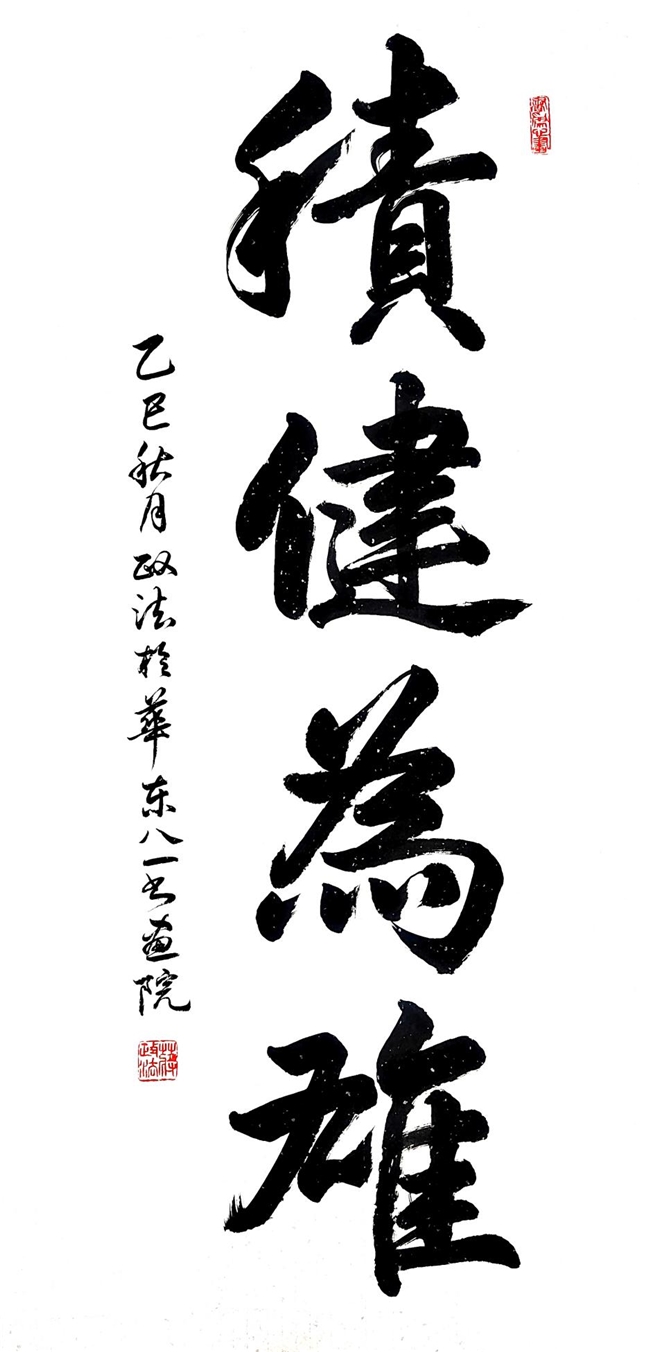 積健為雄
乙巳秋月政法於華东八一书画院
薛政法